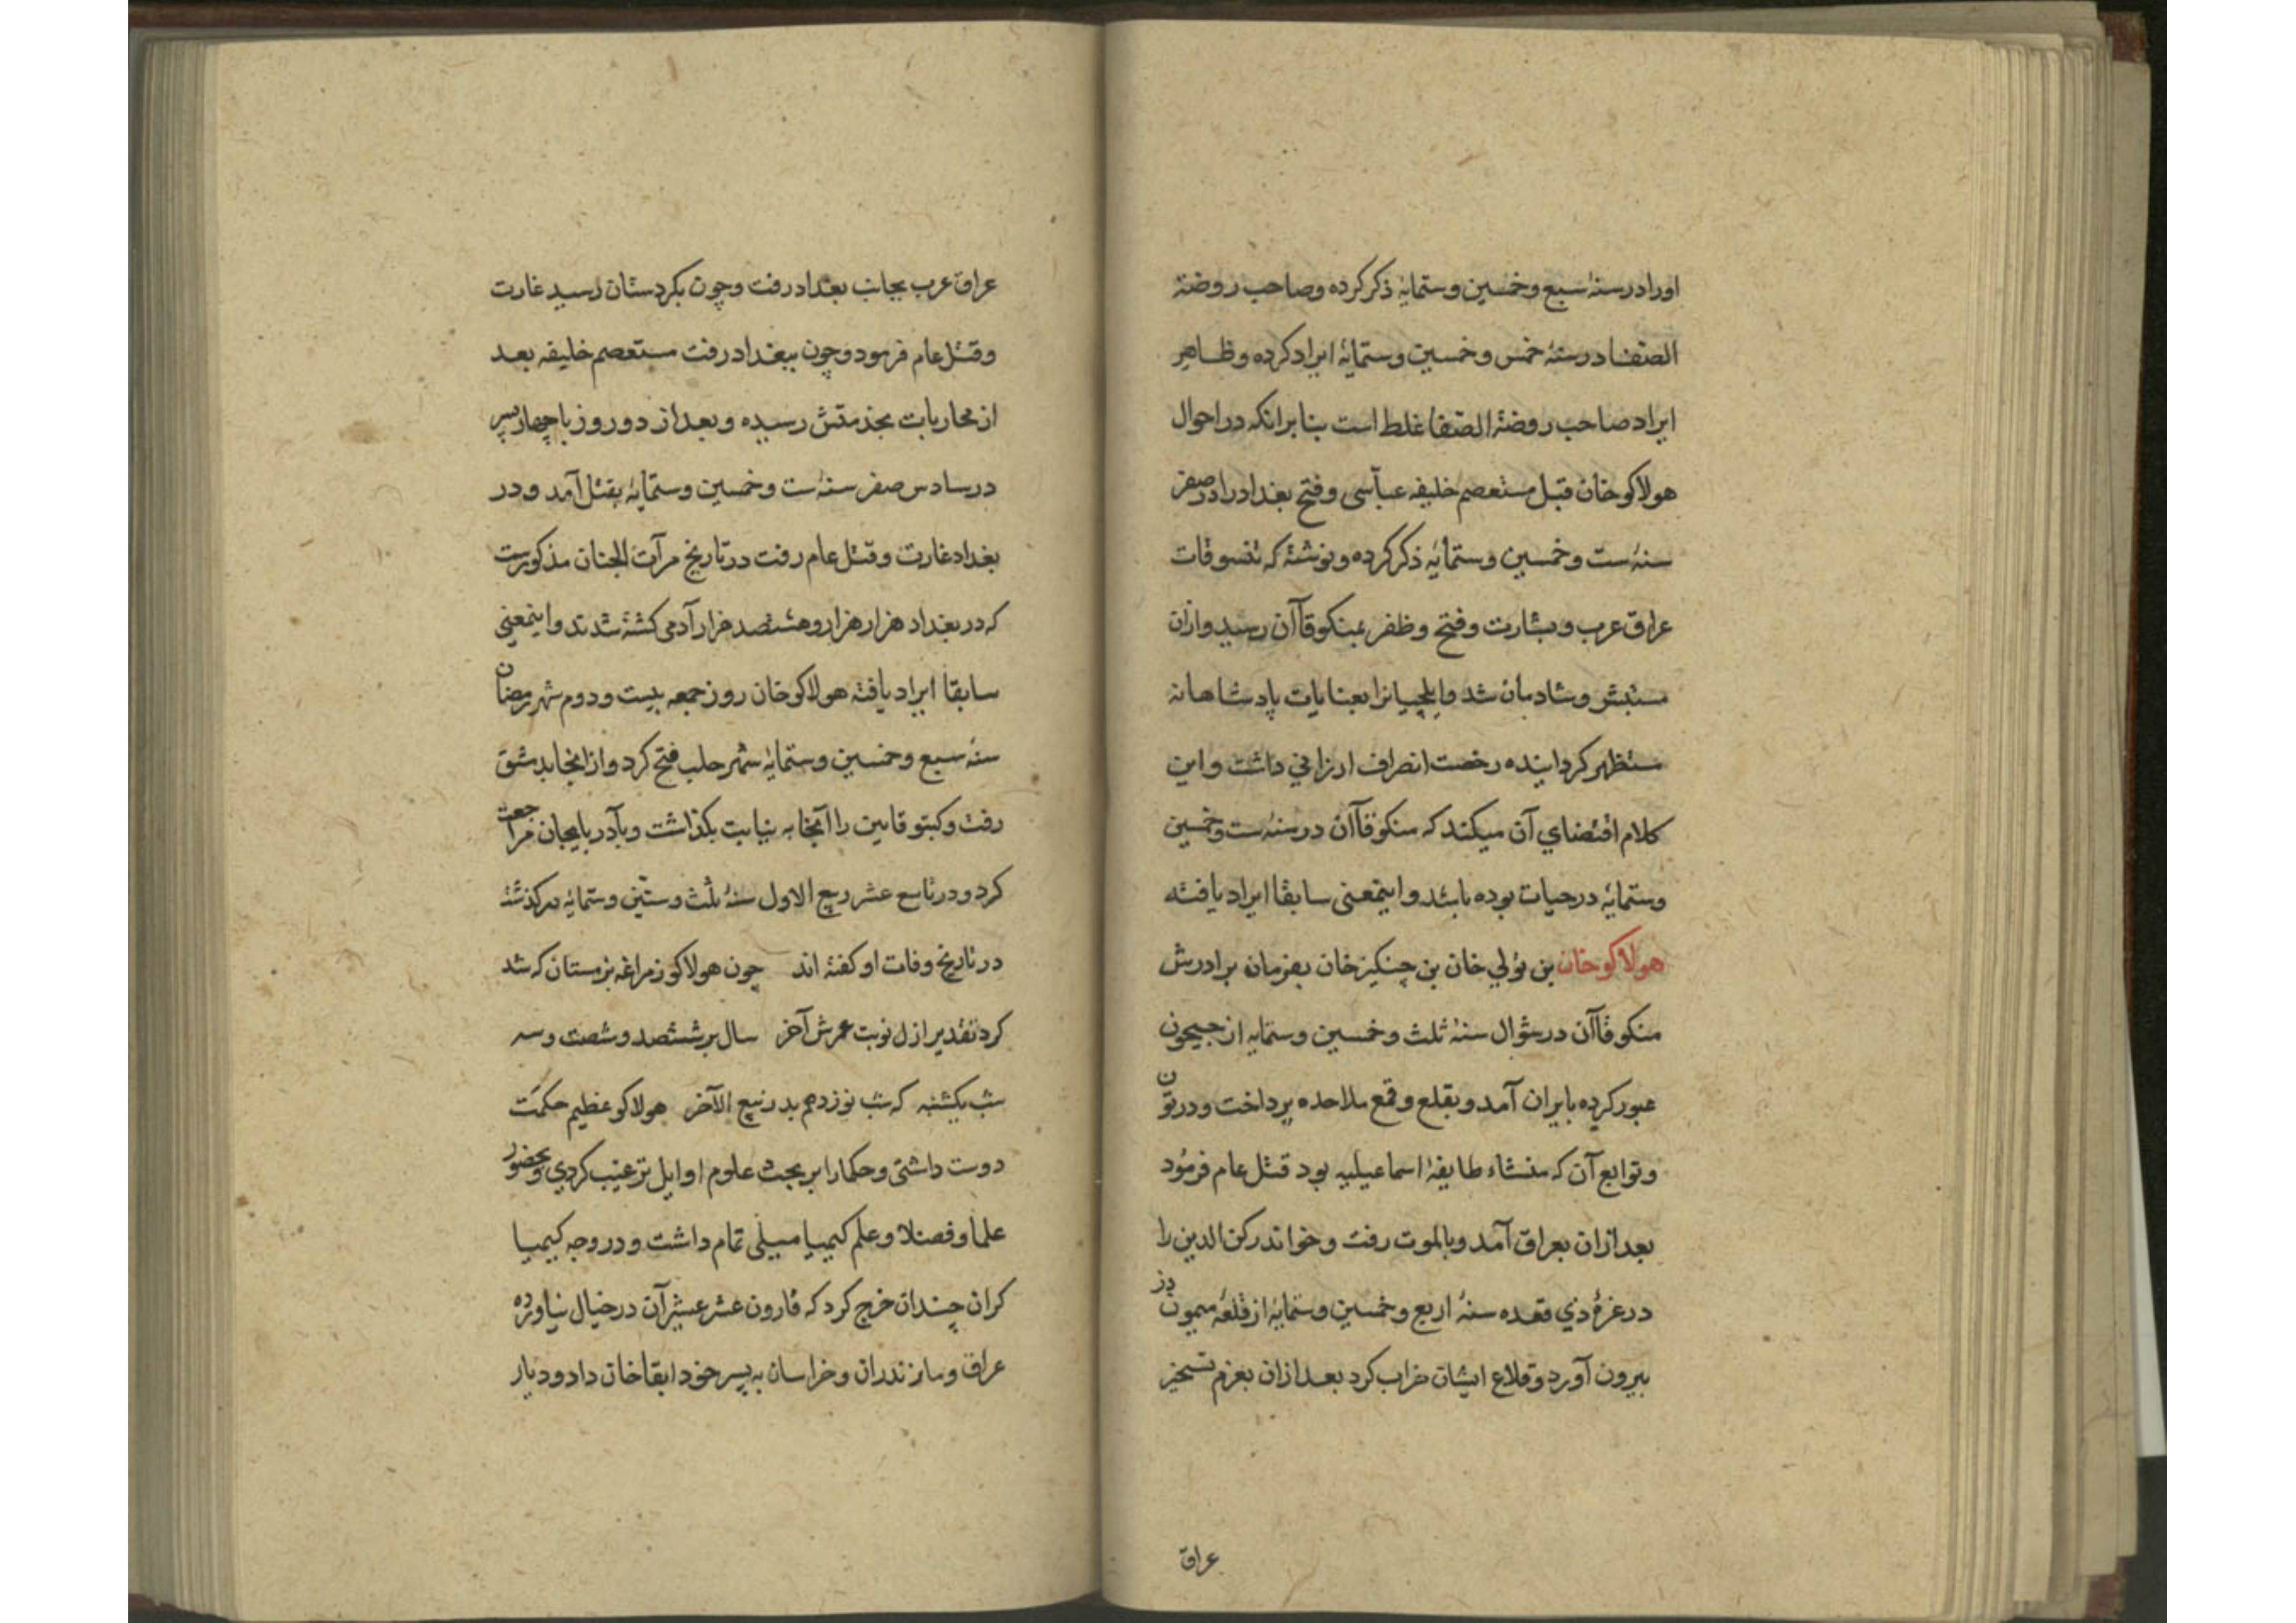 اورا در سنهٔ سبع و خمسین و ستمایهٔ ذکر کرده و صاحب روضة
الصّفا در سنهٔ خمس و خمسین و ستمایهٔ ایراد کرده و ظاهر
ایراد صاحب روضة الصّفا غلط است بنابرانکه در احوال
هولاکو خان قبل مستعصم خلیفه عباّسی و فتح بغداد را در صفر
سنه ست و خمسین و ستمایهٔ ذکر کرده و نوشته که تنسوقات
عراق عرب و بشارت و فتح و ظفر بمنکو قاآن رسید و ازان
مستبشر و شادمان شد و ایلچیانرا بعنایات پادشاهانه
مستظهر کردانیده رخصت انصراف ارزانی داشت و این
کلام اقتضاي آن میکند که منکو قاآن در سنه ست و خمسین
و ستمایهٔ در حیات بوده باشد و اینمعنی سابقا ایراد یافته
هولاکو خان بن تولي خان بن چنکیز خان بفرمان برادرش
منکو قاآن در شوال سنهٔ ثلث و خمسین و ستمایه از جیحون
عبور کرده بایران آمد و بقلع و قمع ملاحده پرداخت و در تون
و توابع آن که منشاء طایفهٔ اسماعیلیه بود قتل عام فرمُود
بعد ازان بعراق آمد و بالموت رفت و خواند رکن الدین را
در غرهٔ ذي قعده سنهٔ اربع و خمسین و ستمایهٔ از قلعهٔ میمون دز
بیرون آورد و قلاع ایشان خراب کرد بعد ازان بعزم تسخیر
عراق
عراق عرب بجانب بغداد رفت و چون بکردستان رسید غارت
و قتل عام فرمود و چون ببغداد رفت مستعصم خلیفه بعد
از محاربات بخدمتش رسیده و بعد از دو روز با چهار پسر
در سادس صفر سنه ست و خمسین و ستمایهٔ بقتل آمد و در
بغداد غارت و قتل عام رفت در تاریخ مرآت الجنان مذکورست
که در بغداد هزار هزار و هشتصد هزار آدمی کشته شدند و اینمعنی
سابقا ایراد یافته هولاکو خان روز جمعه بیست و دوم شهر رمضان
سنهٔ سبع و خمسین و ستمایهٔ شهر حلب فتح کرد و از انجا بدمشق
رفت و کبتو قایین را آنجا به نیابت بکذاشت و بآدربایجان مراجعت
کرد و در تاسع عشر ربیع الاول سنهٔ ثلث و ستّین و ستمایهٔ درکذشت
در تاریخ وفات او کفته اند چون هولاکو ز مراغه بزمستان که شد
کرد تقدیر ازل نوبت عمرش آخر سال بر ششصد و شصت و سه
شب یکشنبه که شب نوزدهم بد ربیع الآخر هولاکو عظیم حکمَت
دوست داشتی و حکما را بر بحث علوم اوایل ترغیب کردي و بحضور
علما و فضلا و علم کیمیا میلی تمام داشت و در وجه کیمیا
کران چندان خرج کرد که قارون عشر عشیر آن در خیال نیاورده
عراق و مازندران و خراسان به پسر خود ابقا خان داد و دیار